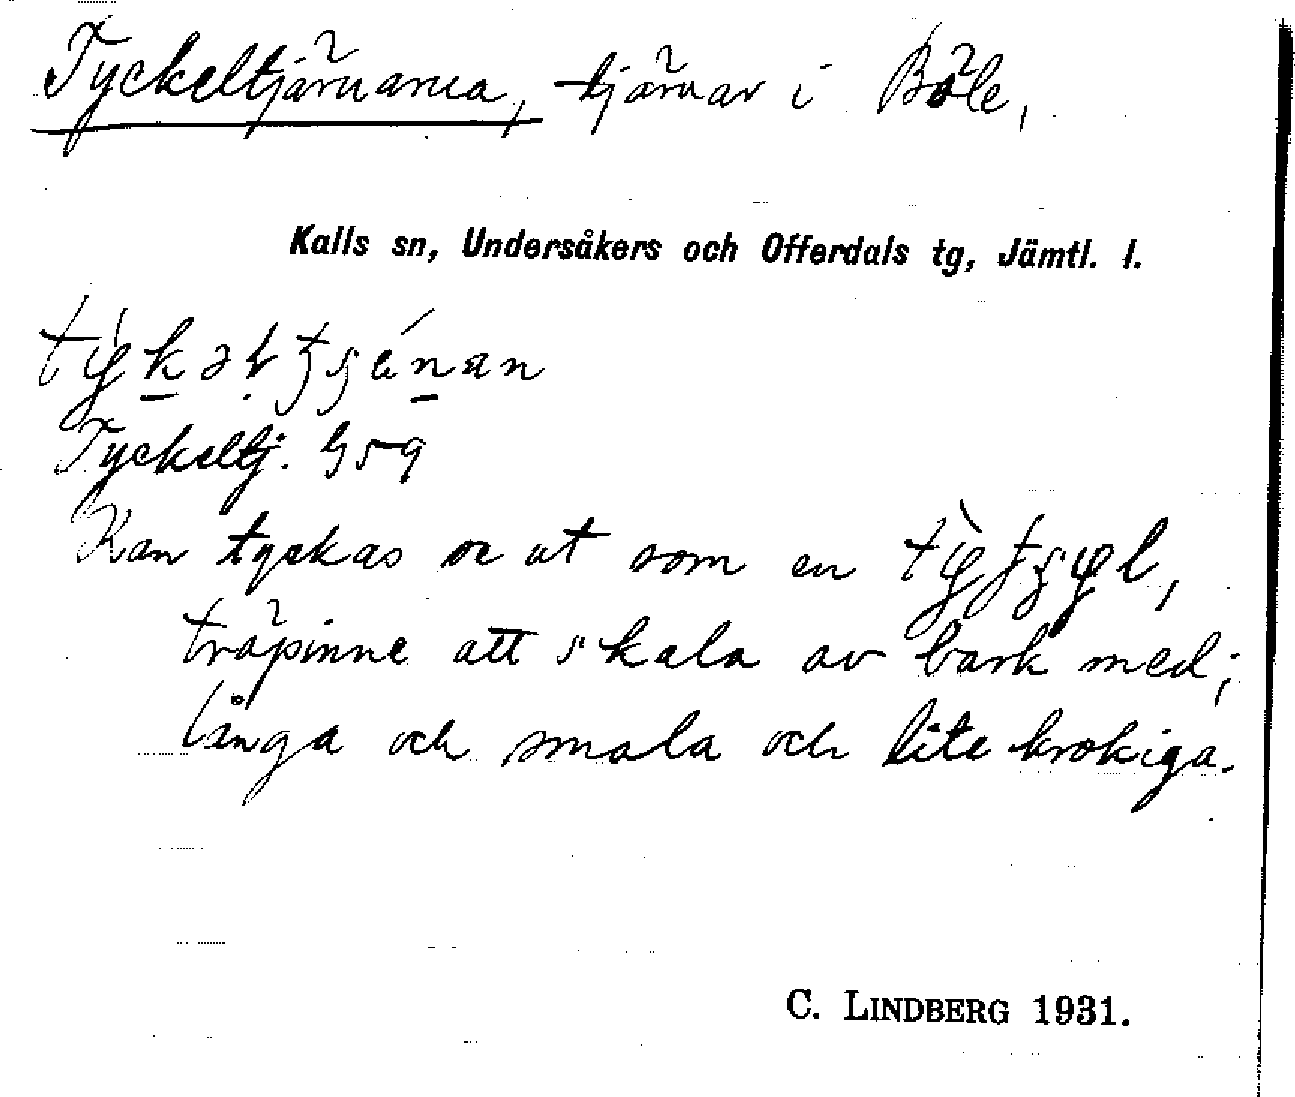 Tyckeltjärnarna, tjärnar i Böle,
Kalls sn, Undersåkers och Offerdals tg, Jämtl. l.
Tyckeltj. G59
Kan tyckas se ut som en
träpinne att skala av bark med;
långa och smala och lite krokiga.
C. LINDBERG 1931.